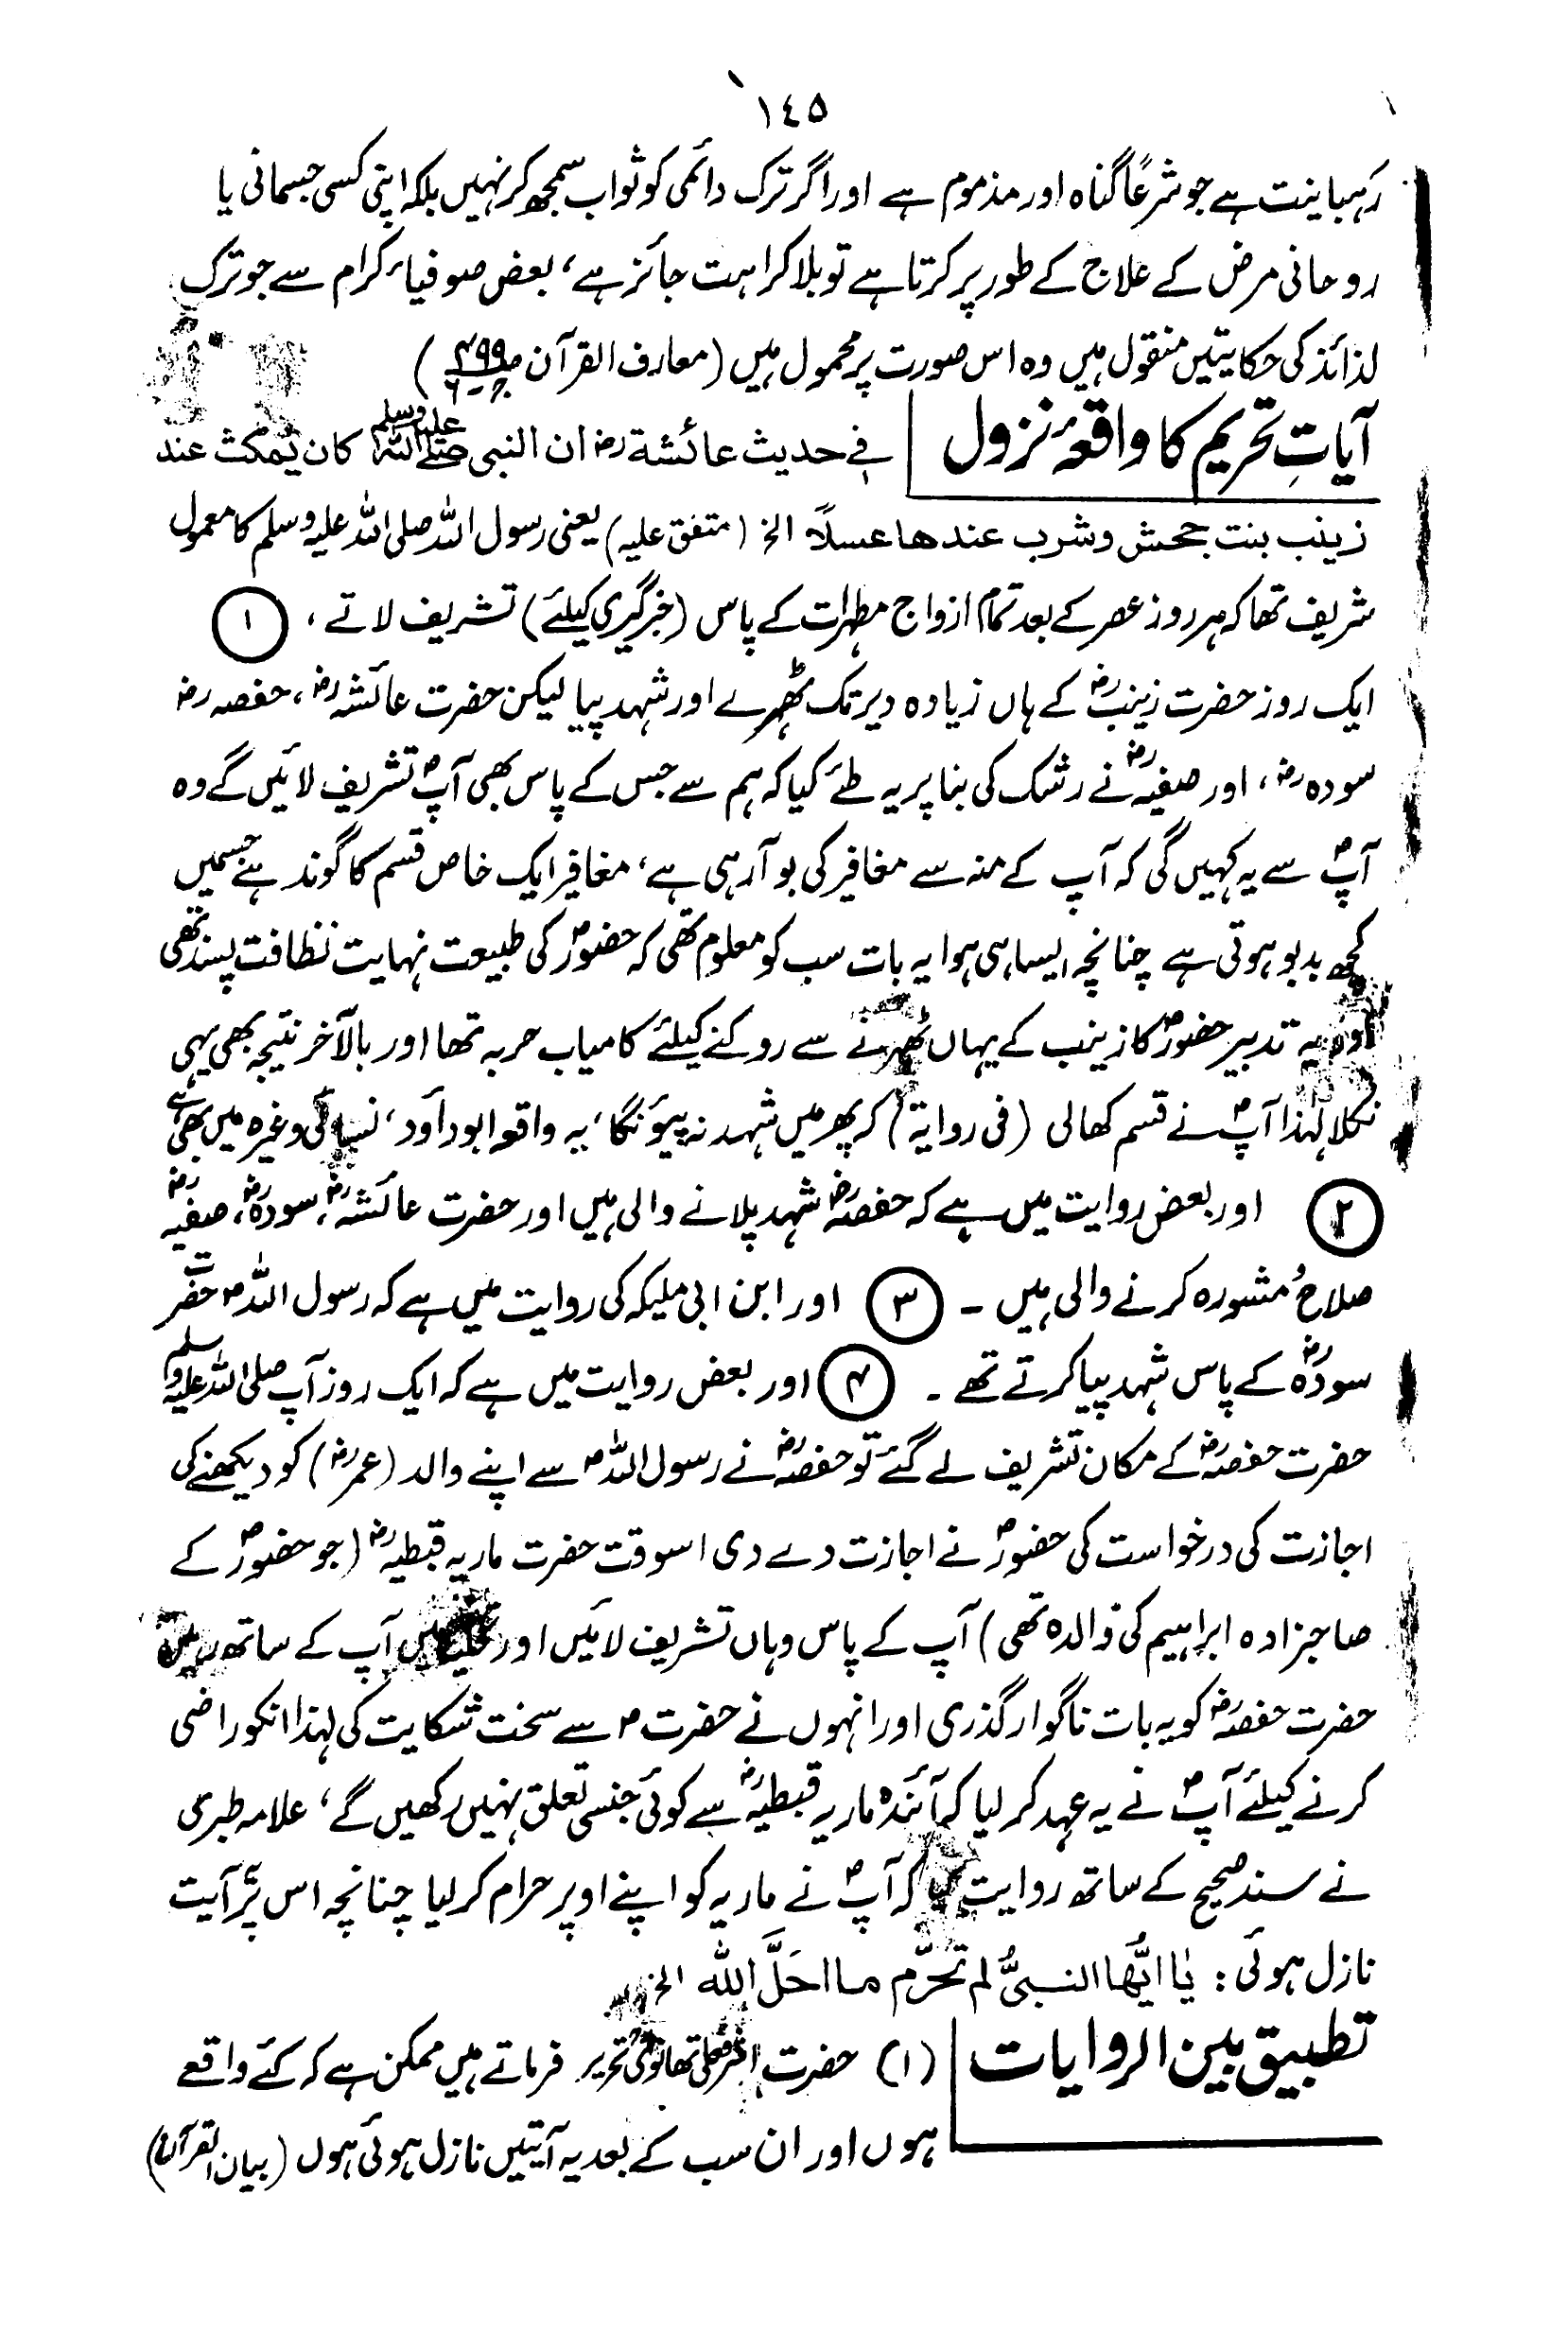 ١٤٥
رہبانیت ہے جو شرعًا گناہ اور مذموم ہے اور اگر ترک دائمی کو ثواب سمجھ کر نہیں بلکہ اپنی کسی جسمانی یا
روحانی مرض کے علاج کے طور پر کرتا ہے تو بلا کراہت جائز ہے، بعض صوفیاء کرام سے جو ترک
لذائذ کی حکایتیں منقول ہیں وہ اس صورت پر محمول ہیں (معارف القرآن ص۴۹۹)
آیاتِ تحریم کا واقعۂ نزول فی حدیث عائشة رض ان النبی صلی اللہ علیہ وسلم کان یمکث عند
زینب بنت جحش وشرب عندها عسلًا الخ (متفق علیہ) یعنی رسول اللہ صلی اللہ علیہ وسلم کا معمول
شریف تھا کہ ہر روز عصر کے بعد تمام ازواج مطہرات کے پاس (خبرگیری کیلئے) تشریف لاتے، ①
ایک روز حضرت زینب رض کے ہاں زیادہ دیر تک ٹھہرے اور شہد پیا لیکن حضرت عائشہ رض، حفصہ رض
سودہ رض، اور صفیہ رض نے رشک کی بنا پر یہ طئے کیا کہ ہم سے جس کے پاس بھی آپ ص تشریف لائیں گے وہ
آپ ص سے یہ کہیں گی کہ آپ کے منہ سے مغافیر کی بو آرہی ہے، مغافیر ایک خاص قسم کا گوند ہے جسمیں
کچھ بدبو ہوتی ہے چنانچہ ایسا ہی ہوا یہ بات سب کو معلوم تھی کہ حضور ص کی طبیعت نہایت نظافت پسند تھی
اور یہ تدبیر حضور ص کا زینب کے یہاں ٹھہرنے سے روکنے کیلئے کامیاب حربہ تھا اور بالآخر نتیجہ بھی یہی
نکلا لہٰذا آپ ص نے قسم کھالی (فی روایۃ) کہ پھر میں شہد نہ پیؤنگا، یہ واقعہ ابوداؤد، نسائی وغیرہ میں بھی ہے
② اور بعض روایت میں ہے کہ حفصہ رض شہد پلانے والی ہیں اور حضرت عائشہ رض، سودہ رض، صفیہ رض
صلاح مشورہ کرنے والی ہیں ۔ ③ اور ابن ابی ملیکہ کی روایت میں ہے کہ رسول اللہ ص حضرت
سودہ رض کے پاس شہد پیا کرتے تھے ۔ ④ اور بعض روایت میں ہے کہ ایک روز آپ صلی اللہ علیہ وسلم
حضرت حفصہ رض کے مکان تشریف لے گئے تو حفصہ رض نے رسول اللہ ص سے اپنے والد (عمر رض) کو دیکھنے کی
اجازت کی درخواست کی حضور ص نے اجازت دے دی اسوقت حضرت ماریہ قبطیہ رض (جو حضور ص کے
صاحبزادہ ابراہیم کی والدہ تھی) آپ کے پاس وہاں تشریف لائیں اور آپ کے ساتھ رہیں
حضرت حفصہ رض کو یہ بات ناگوار گذری اور انہوں نے حضرت ص سے سخت شکایت کی لہٰذا انکو راضی
کرنے کیلئے آپ ص نے یہ عہد کر لیا کہ آئندہ ماریہ قبطیہ رض سے کوئی جنسی تعلق نہیں رکھیں گے، علامہ طبری
نے سند صحیح کے ساتھ روایت کہ آپ ص نے ماریہ کو اپنے اوپر حرام کرلیا چنانچہ اس پر آیت
نازل ہوئی: یٰا ایُّها النبیُّ لم تحرّم ما احَلَّ الله الخ
تطبیق بین الروایات (۱) حضرت اشرفعلی تھانوی تحریر فرماتے ہیں ممکن ہے کہ کئے واقعے
ہوں اور ان سب کے بعد یہ آیتیں نازل ہوئی ہوں (بیان القرآن)